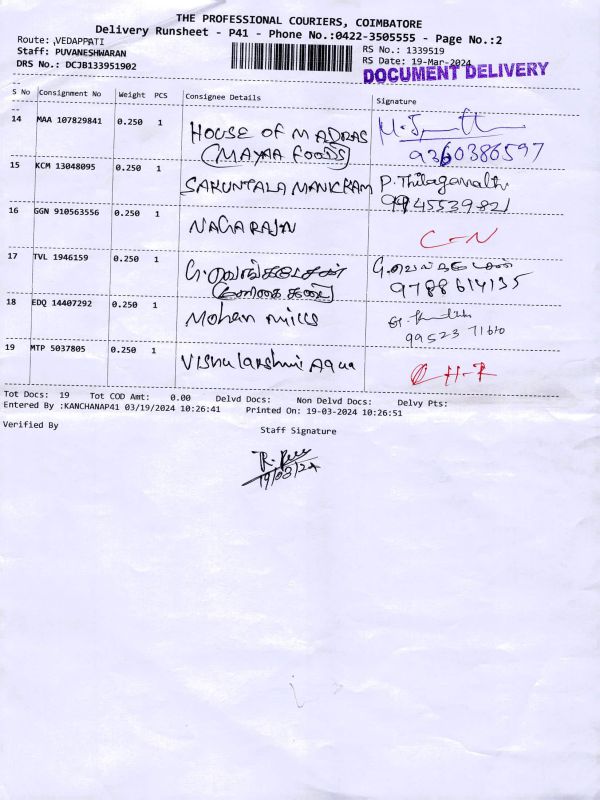 THE PROFESSIONAL COURIERS, COIMBATORE
Delivery Runsheet - P41 - Phone No.:0422-3505555 - Page No.:2
Route: VEDAPPATI
Staff: PUVANESHWARAN
DRS No.: DCJB133951902
RS No.: 1339519
RS Date: 19-Mar-2024
DOCUMENT DELIVERY
S No Consignment No Weight PCS Consignee Details Signature
14 MAA 107829841 0.250 1 HOUSE OF MADRAS
(MAYAA FOODS) 9360386597
15 KCM 13048095 0.250 1 SAKUNTALA MANICKRAM P. Thilagamathi
9945539821
16 GGN 910563556 0.250 1 NAGARAJN C-N
17 TVL 1946159 0.250 1 G. வெங்கடேசன்
9788614135
18 EDQ 14407292 0.250 1 Mohan mills
99523 71610
19 MTP 5037805 0.250 1 Vishulakshmi Aqua
Tot Docs: 19 Tot COD Amt: 0.00 Delvd Docs: Non Delvd Docs: Delvy Pts:
Entered By :KANCHANAP41 03/19/2024 10:26:41 Printed On: 19-03-2024 10:26:51
Verified By
Staff Signature
19/03/24